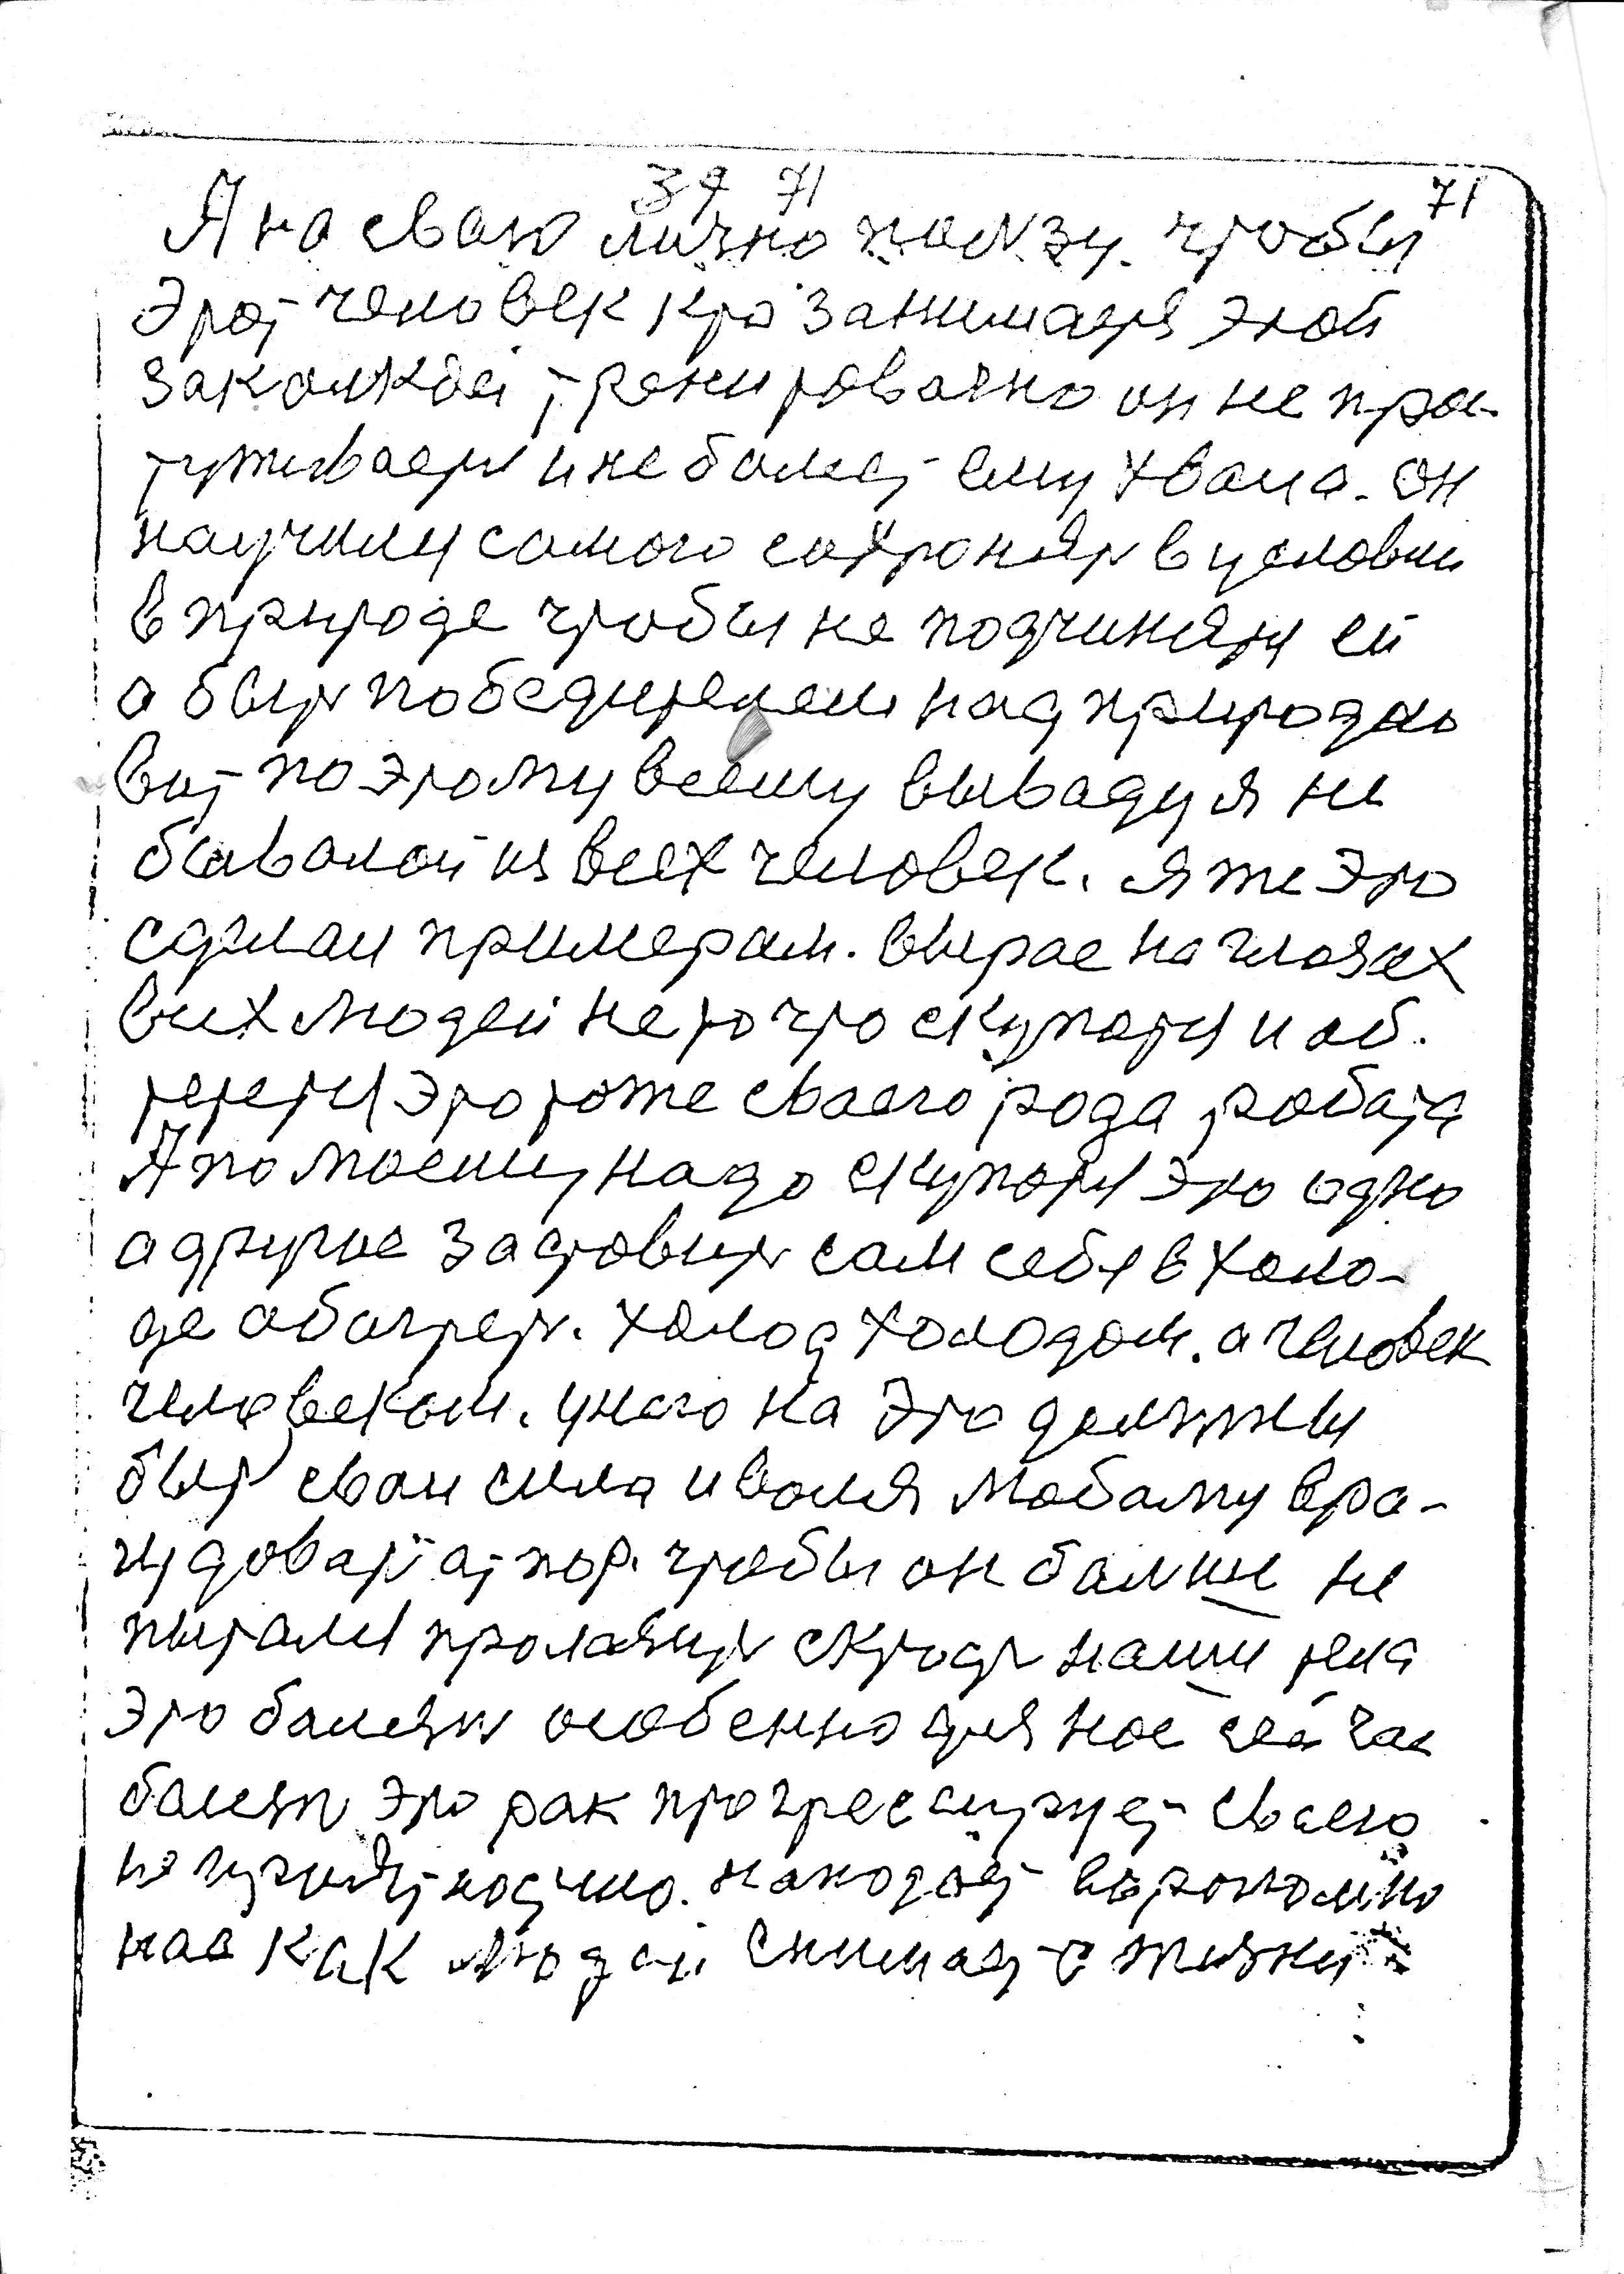 39 71 71
Я на сваю лично ползу. чтобы
этот человек кто занимается этой
закалкой тренировачно он не прос-
туживаеть и не болеет ему хвала. он
научилися самого сохронять в условии
в природе чтобы не подчинятся ей
а быть победителем над природою
вот по этому всему выводу я не
бывалой из всех человек. я же это
сделал примером. вытрае на глазах
всех людей не то что скупатся и об.
теретсы это тоже своего рода работа
А по моему надо скупатся это одно
а другие заставить сам себя в холо-
де обагреть. холод холодом. а человек
человеком. унего на это должны
быть сваи сила и воля любому вра-
гу довать отпор. чтобы он больше не
пытался пролазить скрозь наши тела
это балезнь особенно для нас сейчас
балезнь это рак прогрессирует своего
наход́ет вероломно
нас как людей снимает с жизни